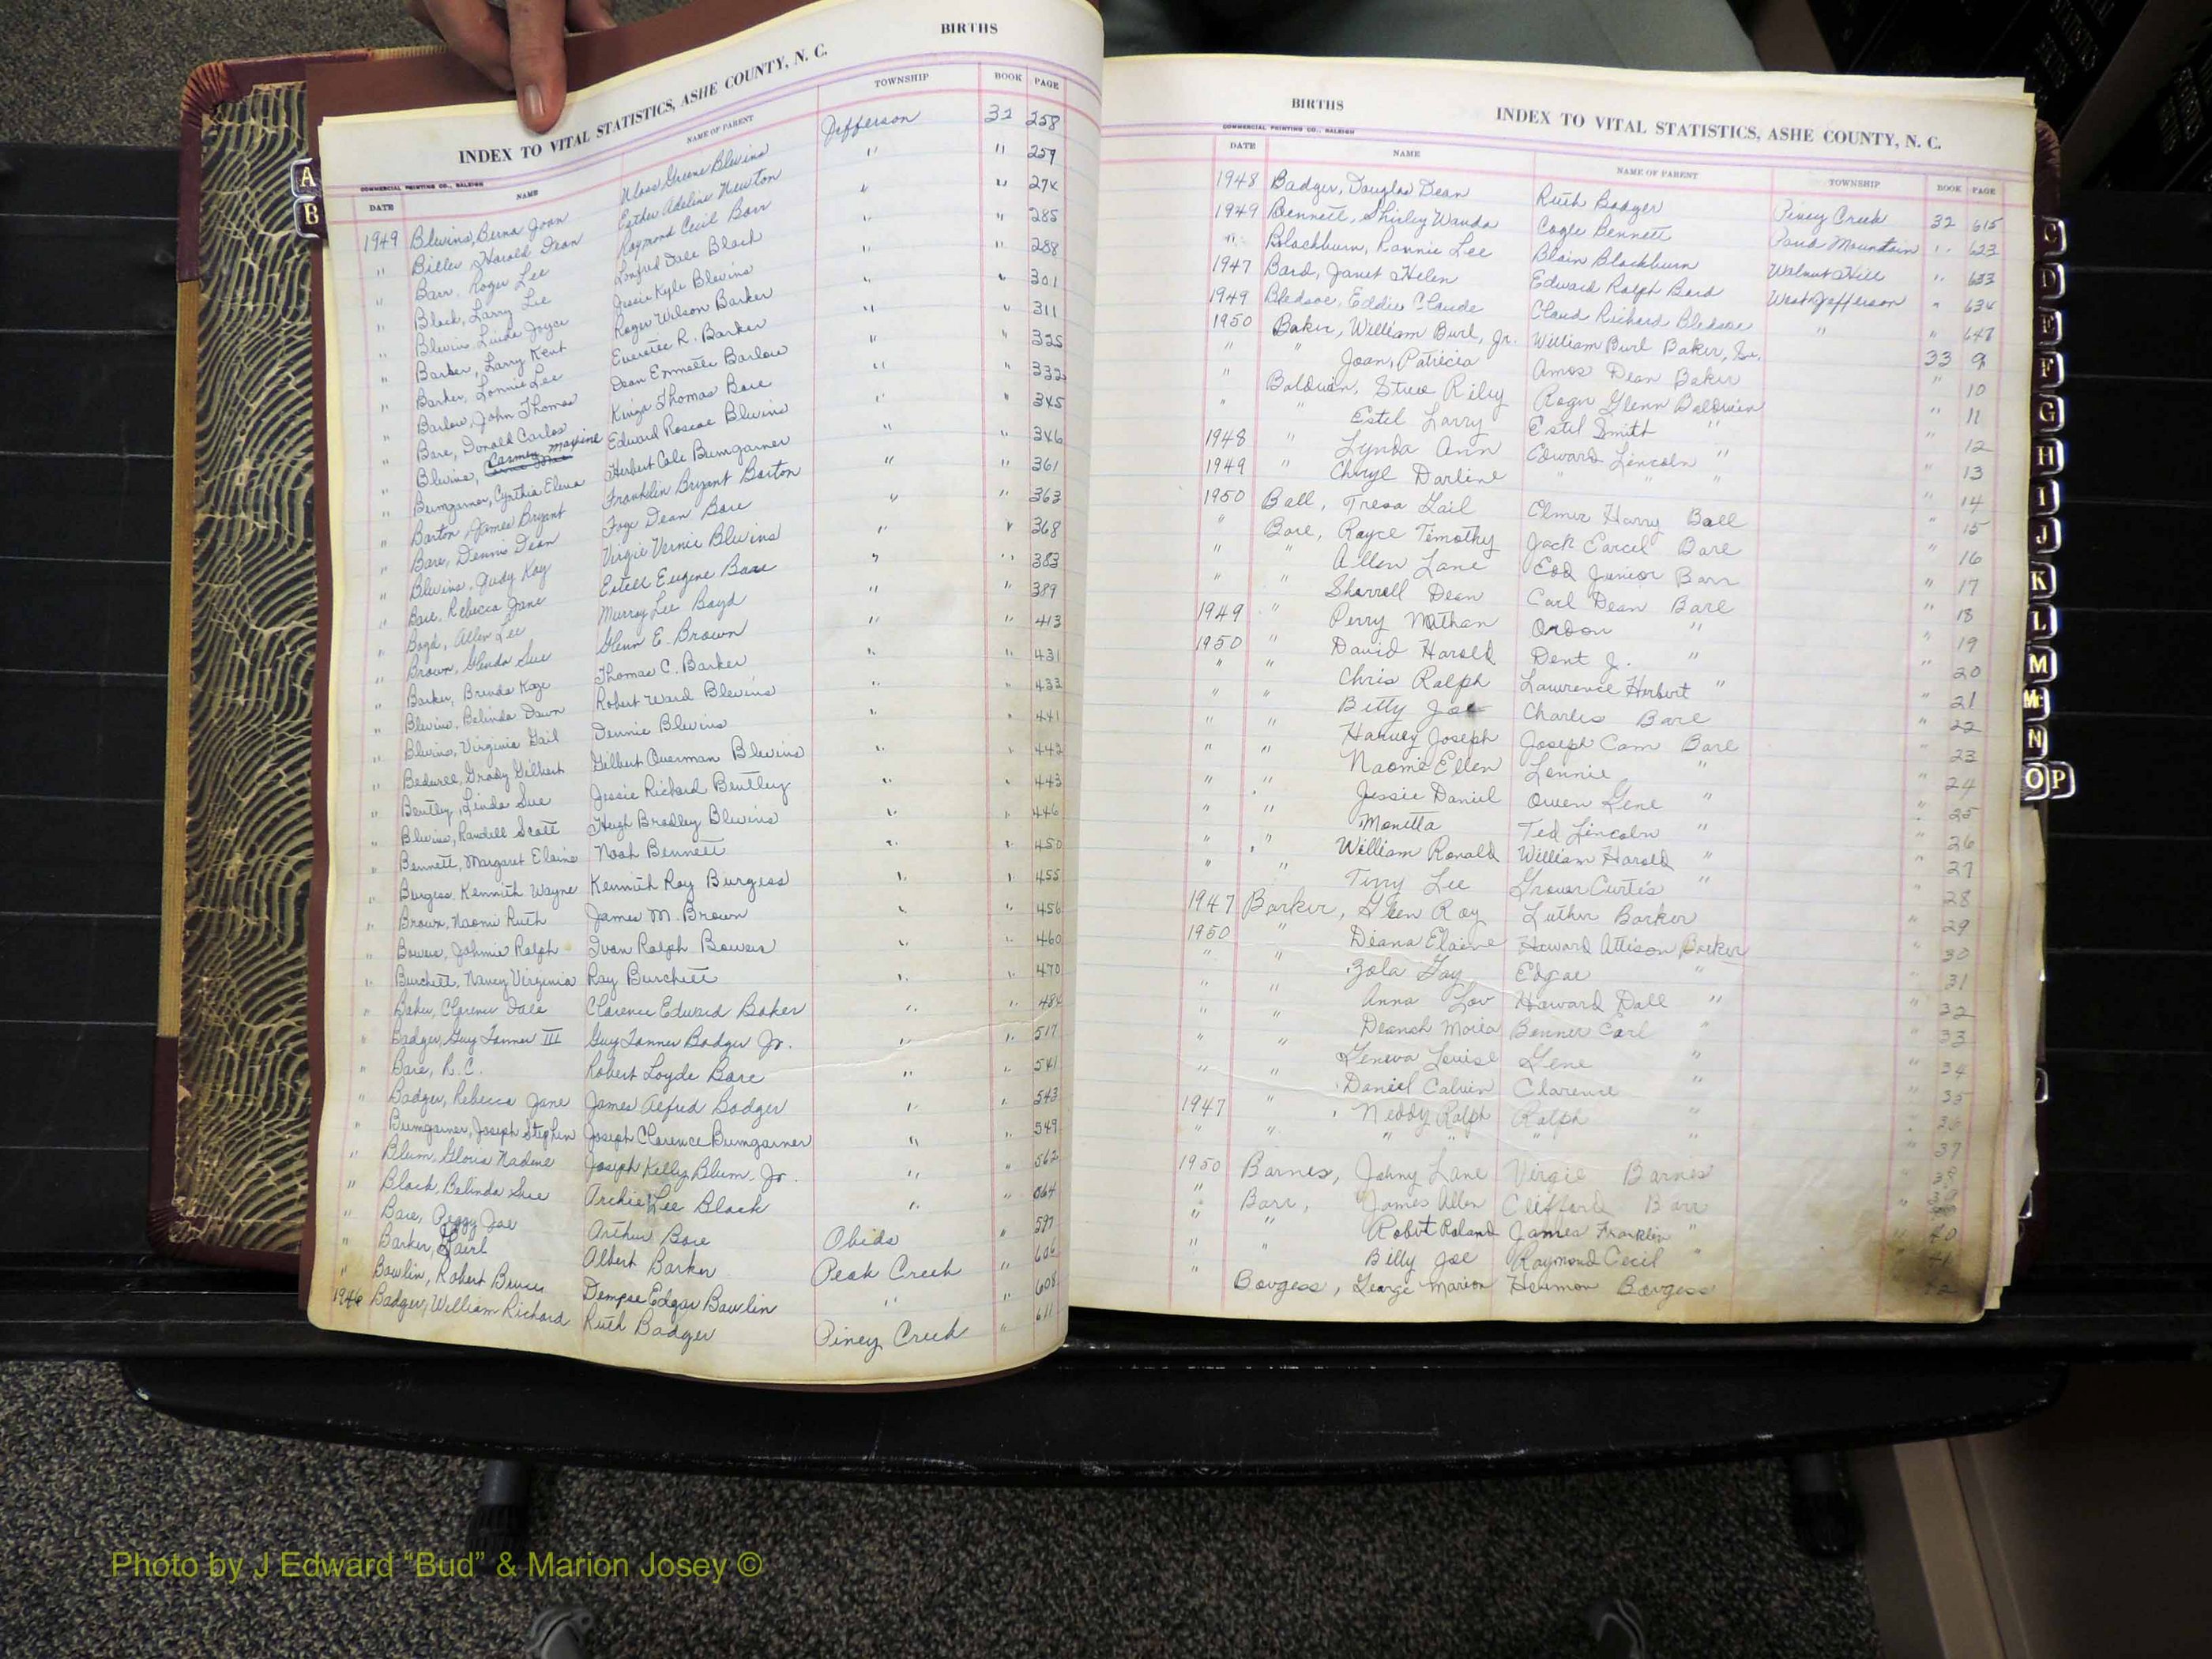 BIRTHS
INDEX TO VITAL STATISTICS, ASHE COUNTY, N. C.
COMMERCIAL PRINTING CO., RALEIGH
DATE NAME NAME OF PARENT TOWNSHIP BOOK PAGE
1949 Blevins, Berna Joan Wess Greene Blevins Jefferson 32 258
" Biller, Harold Dean Esther Adeline Newton " " 259
" Barr, Roger Lee Raymond Cecil Barr " " 274
" Black, Larry Lee Dale Black " " 285
" Blevins, Linda Joyce Jessie Kyle Blevins " " 288
" Barker, Larry Kent Roger Wilson Barker " " 301
" Barker, Lonnie Lee Everette R. Barker " " 311
" Barlow, John Thomas Dean Emmette Barlow " " 325
" Bare, Donald Carlos Kinza Thomas Bare " " 332
" Blevins, Carmen Maxine Edward Roscoe Blevins " " 345
" Bumgarner, Cynthia Elena Herbert Cole Bumgarner " " 346
" Barton, James Bryant Franklin Bryant Barton " " 361
" Bare, Dennis Dean Foge Dean Bare " " 363
" Blevins, Judy Kay Virgie Vernie Blevins " " 368
" Bare, Rebecca Jane Estell Eugene Bare " " 383
" Boyd, Allen Lee Murray Lee Boyd " " 389
" Brown, Glenda Sue Glenn E. Brown " " 413
" Barker, Brenda Kaye Thomas C. Barker " " 431
" Blevins, Belinda Dawn Robert Ward Blevins " " 433
" Blevins, Virginia Gail Dennie Blevins " " 441
" Beduree, Grady Gilbert Gilbert Querman Blevins " " 442
" Bentley, Linda Sue Jessie Richard Bentley " " 443
" Blevins, Randell Scott Hugh Bradley Blevins " " 446
" Bennett, Margaret Elaine Noah Bennett " " 450
" Burgess, Kennith Wayne Kennith Ray Burgess " " 455
" Brown, Naomi Ruth James M. Brown " " 456
" Bowers, Johnie Ralph Ivan Ralph Bowers " " 460
" Burchett, Nancy Virginia Ray Burchett " " 470
" Baker, Clarence Dale Clarence Edward Baker " " 484
" Badger, Guy Tanner III Guy Tanner Badger Jr. " " 517
" Bare, R. C. Robert Loyde Bare " " 541
" Badger, Rebecca Jane James Alfred Badger " " 543
" Bumgarner, Joseph Stephen Joseph Clarence Bumgarner " " 549
" Blum, Gloria Nadine Joseph Kelly Blum, Jr. " " 562
" Black, Belinda Sue Archie Lee Black " " 564
" Bare, Peggy Joe Arthur Bare Obids " 597
" Barker, Albert Barker Peak Creek " 606
" Bowlin, Robert Bruce Dempse Edgar Bowlin " " 608
1946 Badger, William Richard Ruth Badger Piney Creek " 611
BIRTHS
INDEX TO VITAL STATISTICS, ASHE COUNTY, N. C.
COMMERCIAL PRINTING CO., RALEIGH
DATE NAME NAME OF PARENT TOWNSHIP BOOK PAGE
1948 Badger, Douglas Dean Ruth Badger Piney Creek 32 615
1949 Bennett, Shirley Wanda Cagle Bennett Pond Mountain " 623
" Blackburn, Ronnie Lee Blain Blackburn Walnut Hill " 633
1947 Bard, Janet Helen Edward Ralph Bard West Jefferson " 634
1949 Bledsoe, Eddie Claude Claud Richard Bledsoe " " 647
1950 Baker, William Burl, Jr. William Burl Baker, Sr. 33 9
" " Joan, Patricia Amos Dean Baker " 10
" Baldwin, Steve Riley Roger Glenn Baldwin " 11
" " Estel Larry Estel Smith " " 12
1948 " Lynda Ann Edward Lincoln " " 13
1949 " Cheryl Darline " " " " 14
1950 Ball, Tresa Gail Elmer Harry Ball " 15
" Bare, Royce Timothy Jack Earcel Bare " 16
" " Allen Lane Edd Junior Barr " 17
" " Sherrell Dean Carl Dean Bare " 18
1949 " Perry Nathan Ordon " " 19
1950 " David Harold Dent J. " " 20
" " Chris Ralph Lawrence Herbert " " 21
" " Betty Joe Charles Bare " 22
" " Harvey Joseph Joseph Cam Bare " 23
" " Naomi Ellen Lonnie " " 24
" " Jessie Daniel Owen Gene " " 25
" " Monetta Ted Lincoln " " 26
" " William Ronald William Harold " " 27
" " Terry Lee Grover Curtis " " 28
1947 Barker, Glen Roy Luther Barker " 29
1950 " Diana Elaine Howard Attison Barker " 30
" " Zola Fay Edgar " " 31
" " Anna Lou Howard Dall " " 32
" " Deanah Moria Benner Carl " 33
" " Geneva Louise Gene " " 34
" " Daniel Calvin Clarence " " 35
1947 " Neddy Ralph Ralph " " 36
" " " " " " " 37
1950 Barnes, Johny Lane Virgie Barnes " 38
" Barr, James Allen Clifford Barr "
" " Robert Roland James Franklin " " 40
" " Billy Joe Raymond Cecil " " 41
" Borgess, George Marion Hermon Borgess
A
B
C
D
E
F
G
H
I
J
K
L
M
Mc
N
OP
Photo by J Edward “Bud” & Marion Josey ©